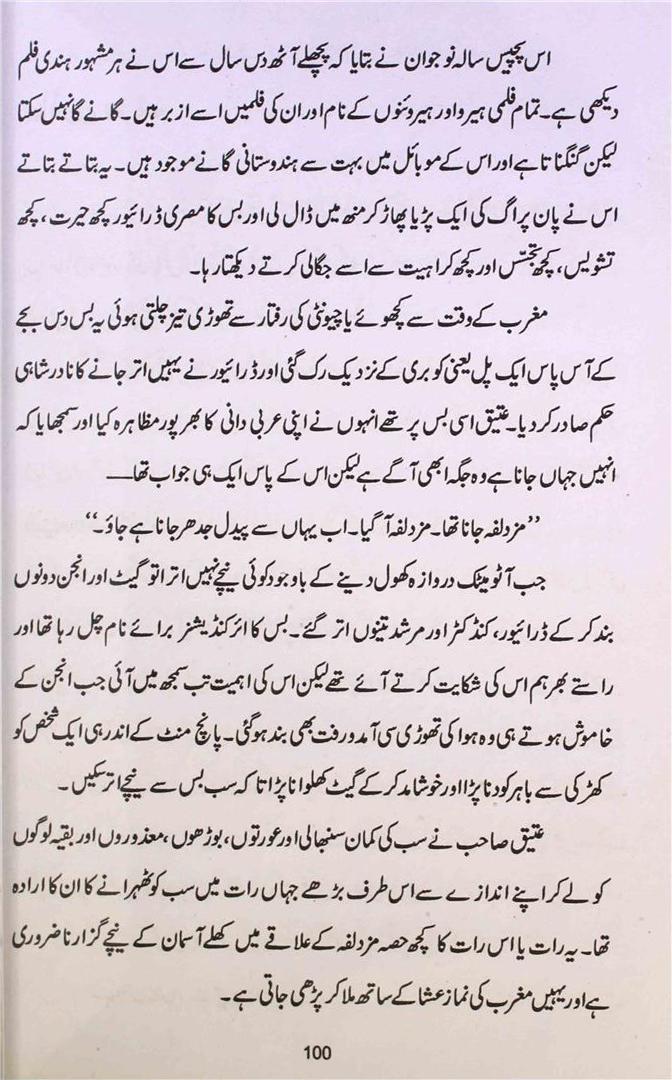 اس پچیس سالہ نوجوان نے بتایا کہ پچھلے آٹھ دس سال سے اس نے ہر مشہور ہندی فلم
دیکھی ہے۔ تمام فلمی ہیرو اور ہیروئنوں کے نام اور ان کی فلمیں اسے ازبر ہیں۔ گانے گا نہیں سکتا
لیکن گنگناتا ہے اور اس کے موبائل میں بہت سے ہندوستانی گانے موجود ہیں۔ یہ بتاتے بتاتے
اس نے پان پراگ کی ایک پڑیا پھاڑ کر منھ میں ڈال لی اور بس کا مصری ڈرائیور کچھ حیرت، کچھ
تشویس، کچھ تجسّس اور کچھ کراہیت سے اسے جگالی کرتے دیکھتا رہا۔
مغرب کے وقت سے کچھوئے یا چیونٹی کی رفتار سے تھوڑی تیز چلتی ہوئی یہ بس دس بجے
کے آس پاس ایک پل یعنی کوبری کے نزدیک رک گئی اور ڈرائیور نے یہیں اتر جانے کا نادر شاہی
حکم صادر کر دیا۔ عتیق اسی بس پر تھے انہوں نے اپنی عربی دانی کا بھرپور مظاہرہ کیا اور سمجھایا کہ
انہیں جہاں جانا ہے وہ جگہ ابھی آگے ہے لیکن اس کے پاس ایک ہی جواب تھا—
”مزدلفہ جانا تھا۔ مزدلفہ آ گیا۔ اب یہاں سے پیدل جدھر جانا ہے جاؤ۔“
جب آٹومیٹک دروازہ کھول دینے کے باوجود کوئی نیچے نہیں اترا تو گیٹ اور انجن دونوں
بند کر کے ڈرائیور، کنڈکٹر اور مرشد تینوں اتر گئے۔ بس کا ائر کنڈیشنر برائے نام چل رہا تھا اور
راستے بھر ہم اس کی شکایت کرتے آئے تھے لیکن اس کی اہمیت تب سمجھ میں آئی جب انجن کے
خاموش ہوتے ہی وہ ہوا کی تھوڑی سی آمد ورفت بھی بند ہو گئی۔ پانچ منٹ کے اندر ہی ایک شخص کو
کھڑکی سے باہر کودنا پڑا اور خوشامد کر کے گیٹ کھلوانا پڑا تا کہ سب بس سے نیچے اتر سکیں۔
عتیق صاحب نے سب کی کمان سنبھالی اور عورتوں، بوڑھوں، معذوروں اور بقیہ لوگوں
کو لے کر اپنے اندازے سے اس طرف بڑھے جہاں رات میں سب کو ٹھہرانے کا ان کا ارادہ
تھا۔ یہ رات یا اس رات کا کچھ حصہ مزدلفہ کے علاقے میں کھلے آسمان کے نیچے گزارنا ضروری
ہے اور یہیں مغرب کی نماز عشا کے ساتھ ملا کر پڑھی جاتی ہے۔
100